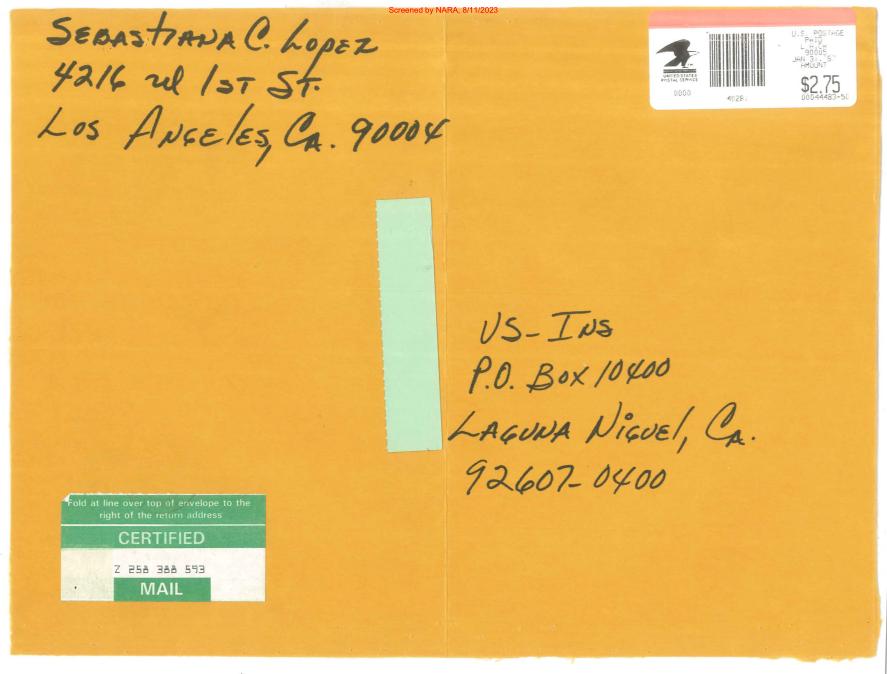 Screened by NARA, 8/11/2023
SEBASTIANA C. LOPEZ
4216 W 1ST ST.
LOS ANGELES, CA. 90004
UNITED STATES
POSTAL SERVICE
0000
U.S. POSTAGE
PAID
90005
AMOUNT
$2.75
00044483-50
US-INS
P.O. BOX 10400
LAGUNA NIGUEL, CA.
92607-0400
Fold at line over top of envelope to the
right of the return address
CERTIFIED
Z 258 388 593
MAIL